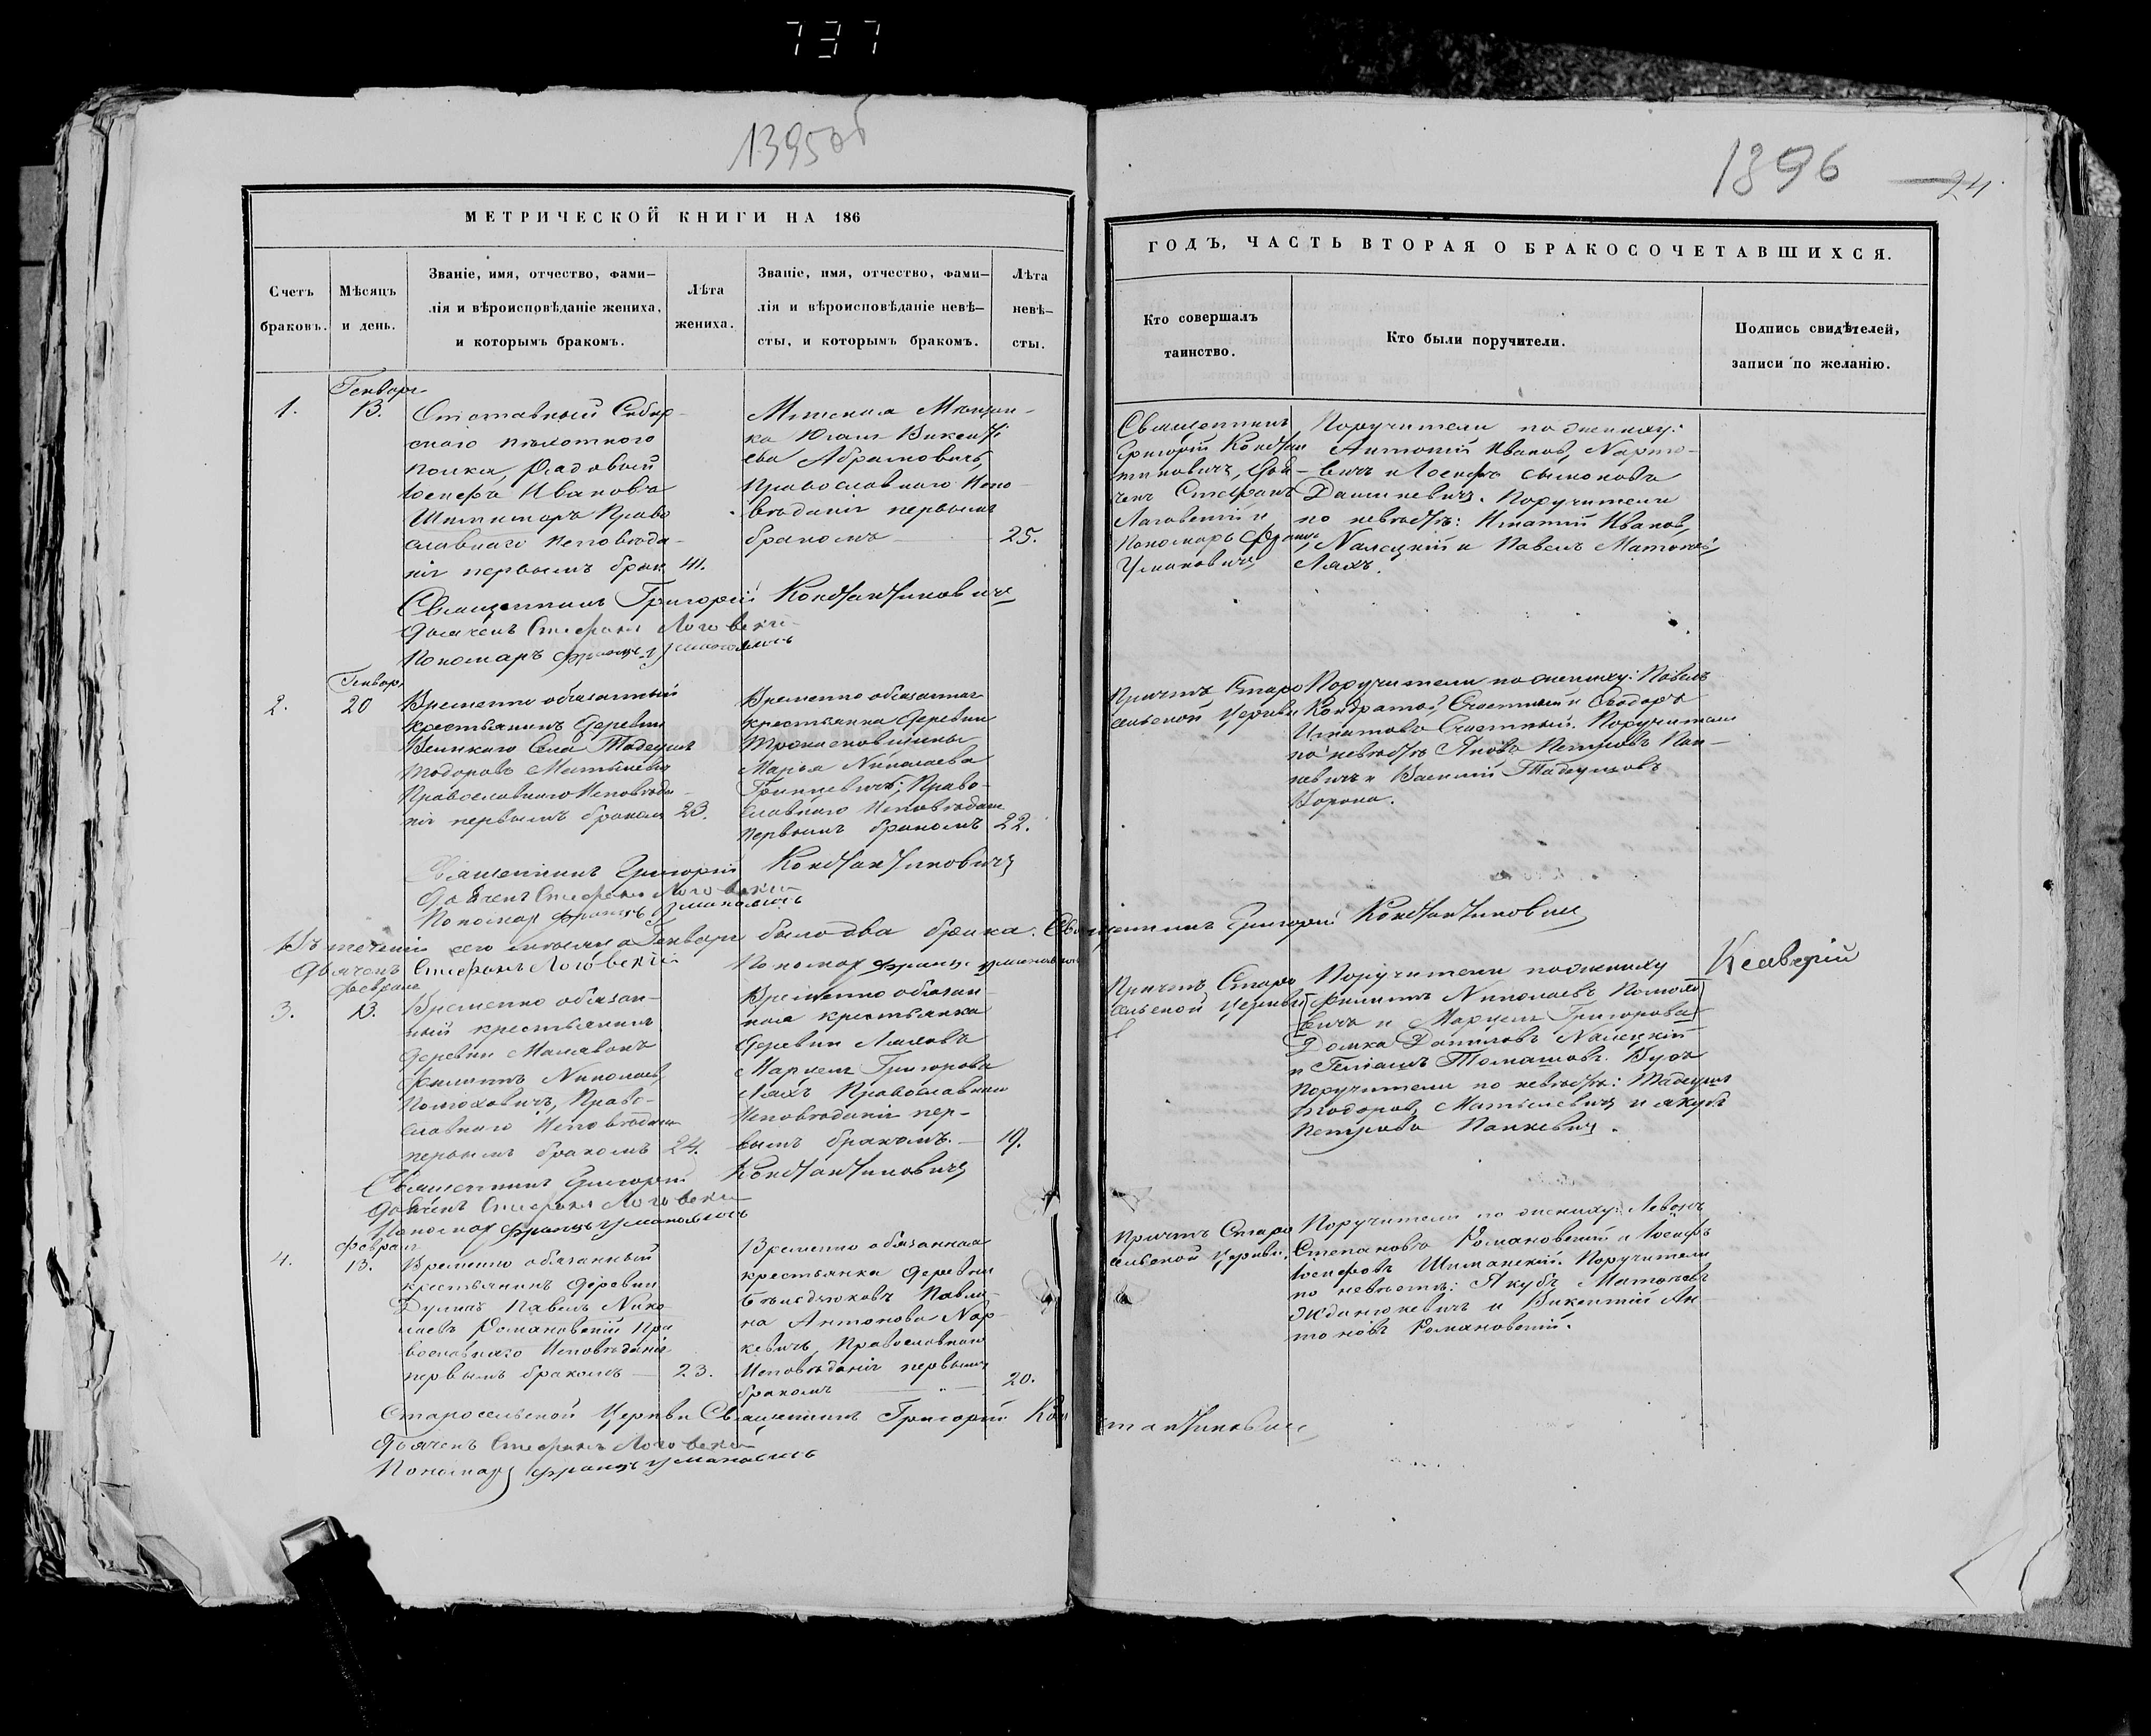 737
1395об
1396
24
МЕТРИЧЕСКОЙ КНИГИ НА 186
Счетъ
браковъ.
Мѣсяцъ
и день.
Званіе, имя, отчество, фами-
лія и вѣроисповѣданіе жениха,
и которымъ бракомъ.
Лѣта
жениха.
Званіе, имя, отчество, фами-
лія и вѣроисповѣданіе невѣ-
сты, и которымъ бракомъ.
Лѣта
невѣ-
сты.
ГОДЪ, ЧАСТЬ ВТОРАЯ О БРАКОСОЧЕТАВШИХСЯ.
Кто совершалъ
таинство.
Кто были поручители.
Подпись свидѣтелей,
записи по желанію.
1.
Генваря
13.
Отставный Сибир-
скаго пѣхотнаго
полка, Рядовый
Іосифъ Ивановъ
Право
славнаго Исповѣда-
нія первымъ брак
41.
Минская Мѣщан-
ка Викентi
ева Абрамовичъ,
Православнаго Испо-
вѣданія первымъ
бракомъ
25.
Священникъ
Григорій Констан
тиновичъ, Дья-
чекъ Стефанъ
Лаговскій и
Пономарь Францъ
Умановичъ
Поручители по жениху:
Антоній Ивановъ,
вичъ и Іосифъ Сымоновъ
Данилевичъ. Поручители
по невѣстѣ: Игнатій Ивановъ,
Налецкій и Павелъ
Ляхъ.
Священникъ Григорій Константиновичъ
Дьячекъ Стефанъ Логовскій
Пономарь Францъ Умановичъ
2.
Генваря
20
Временно обязанный
крестьянинъ деревни
Великаго Села Тадеушъ
Тодоровъ
Православнаго Исповѣда-
нія первымъ бракомъ
23.
Временно обязанная
крестьянка деревни
Марья Николаева
Право-
славнаго Исповѣданія
первымъ бракомъ
22.
Причтъ Старо
сельской Церкви
Поручители по жениху: Павелъ
Кондратов Счастный и Ѳеодоръ
Игнатовъ Счастный. Поручители
по невѣстѣ Яковъ Петровъ Пан-
кевичъ и Василій Тадеушовъ
Ворона.
Священникъ Григорій Константиновичъ
Дьячекъ Стефанъ Логовскій
Пономарь Францъ Умановичъ
Въ теченіи сего мѣсяца Генваря было два брака. Священникъ Григорій Константиновичъ
Дьячекъ Стефанъ Логовскій Пономарь Францъ Умановичъ
3.
Февраля
13.
Временно обязан-
ный крестьянинъ
деревни
Филиппъ Николаевъ
Право-
славнаго Исповѣданія
первымъ бракомъ
24.
Временно обязан-
ная крестьянка
деревни Ляховъ
Григорова
Ляхъ Православнаго
Исповѣданія пер-
вымъ бракомъ
19.
Причтъ Старо
сельской Церкви
Поручители по жениху
Филиппъ Николаевъ
вичъ и Григорова
Данилъ Налецкій
и Томашовъ
Поручители по невѣстѣ: Тадеушъ
Тодоровъ, и Якубъ
Петровъ Панкевичъ.
Ксаверій
Священникъ Григорій Константиновичъ
Дьячекъ Стефанъ Логовскій
Пономарь Францъ Умановичъ
4.
Февраля
13.
Временно обязанный
крестьянинъ деревни
Павелъ Нико
лаевъ Романовскій Пра
вославнаго Исповѣданія
первымъ бракомъ
23.
Временно обязанная
крестьянка деревни
Павли-
на Антонова
кевичъ, Православнаго
Исповѣданія первымъ
бракомъ
20.
Причтъ Старо
сельской Церкви.
Поручители по жениху: Левонъ
Степановъ Романовскій и Іосифъ
Іосифовъ Шиманскій. Поручители
по невѣстѣ: Якубъ
Жданюкевичъ и Викентій Ан-
тоновъ Романовскій.
Старосельской Церкви Священникъ Григорій Константиновичъ
Дьячекъ Стефанъ Логовскій
Пономарь Францъ Умановичъ